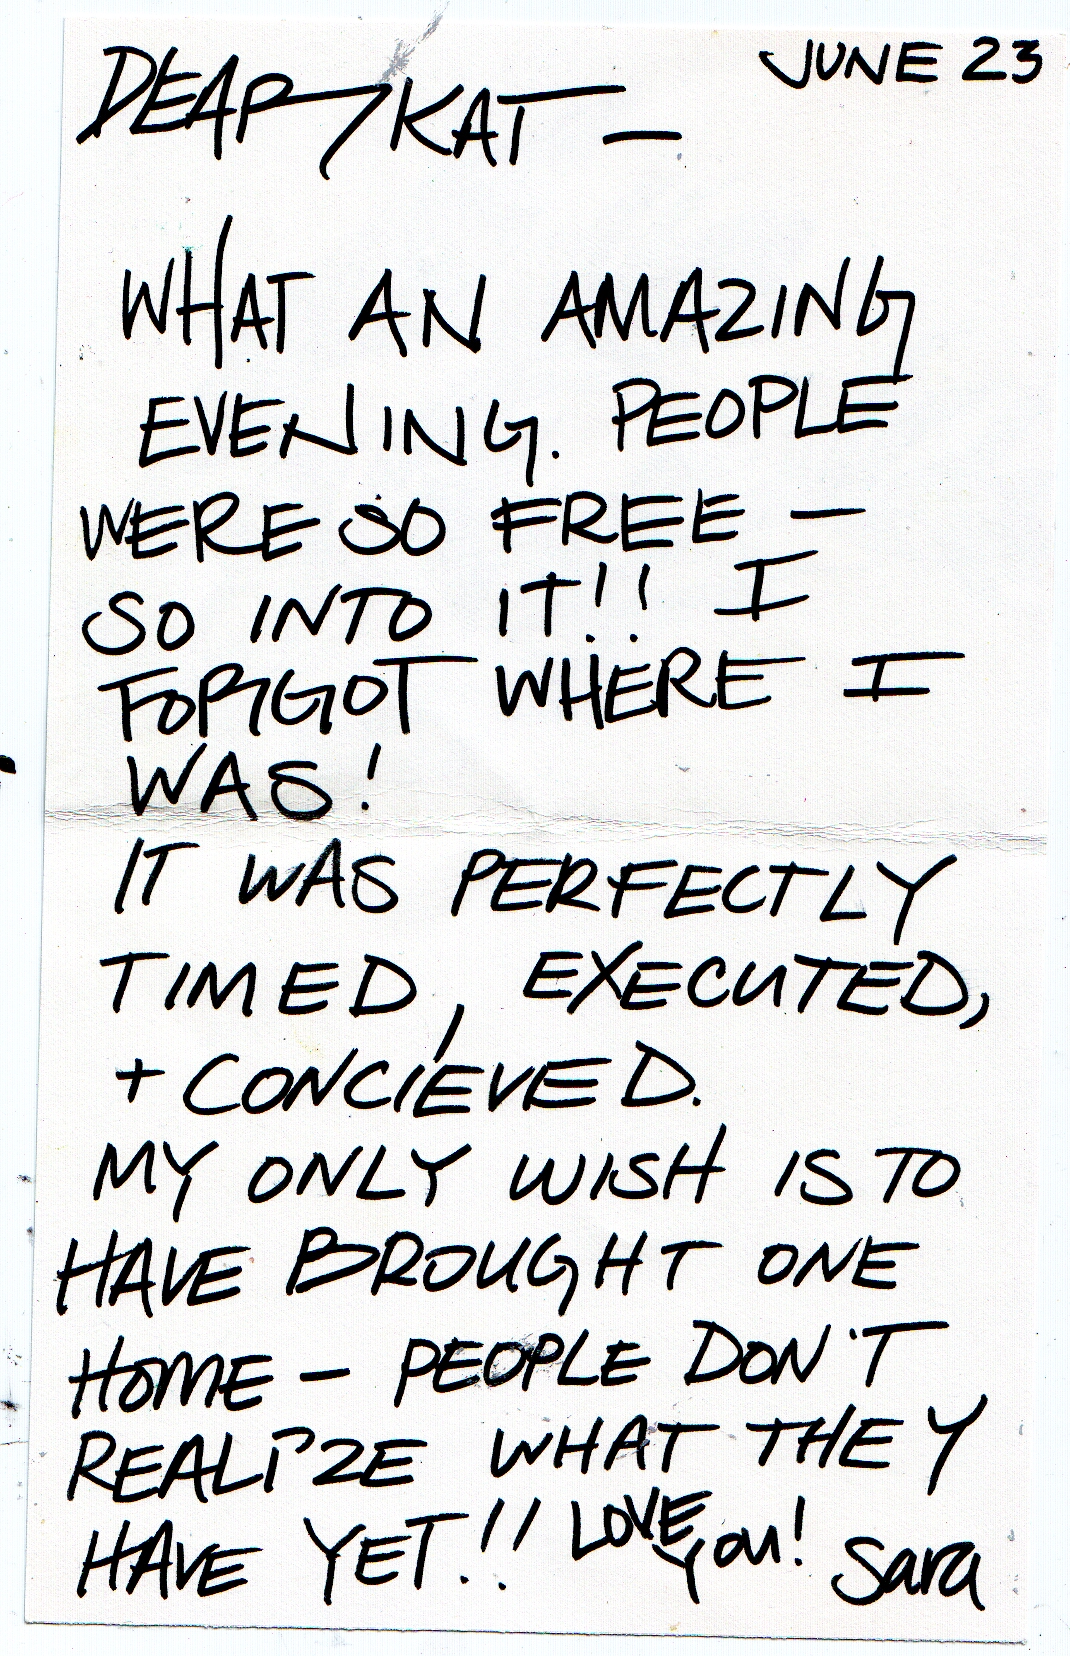 JUNE 23
DEAR KAT —
WHAT AN AMAZING
EVENING. PEOPLE
WERE SO FREE —
SO INTO IT!! I
FORGOT WHERE I
WAS!
IT WAS PERFECTLY
TIMED, EXECUTED,
+ CONCIEVED.
MY ONLY WISH IS TO
HAVE BROUGHT ONE
HOME — PEOPLE DON'T
REALIZE WHAT THEY
HAVE YET!! LOVE you! Sara